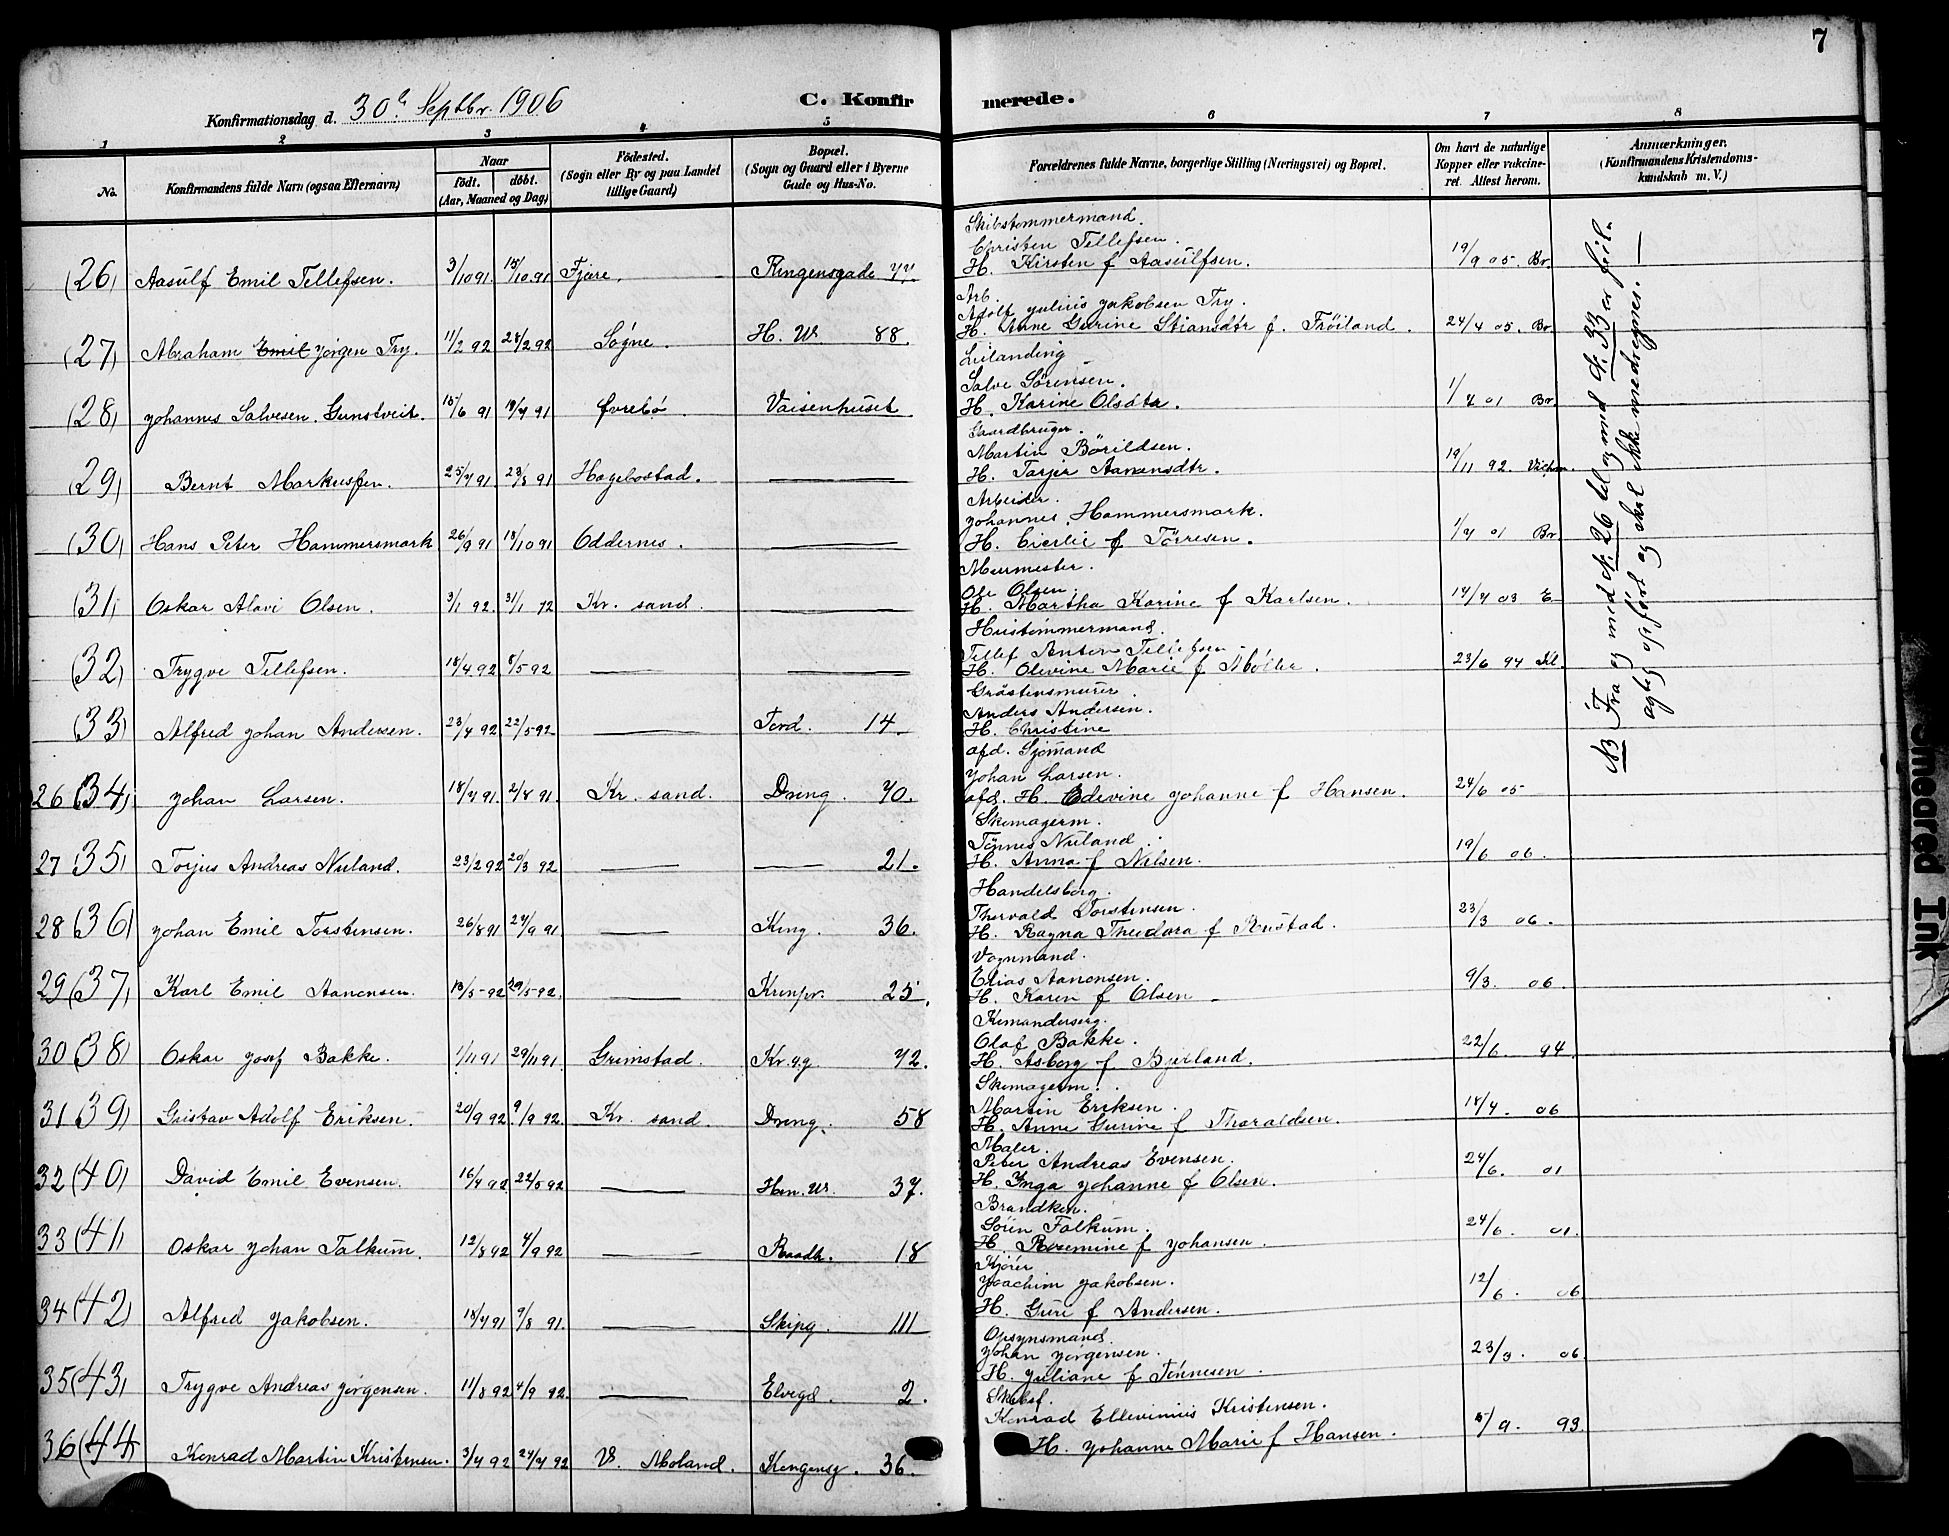 7
Konfirmationsdag d. 30te Septbr. 1906
C. Konfirmerede.
1 2 3 4 5 6 7 8
No.
Konfirmandens fulde Navn (ogsaa Efternavn)
Naar
födt. döbt.
(Aar, Maaned og Dag)
Födested.
(Sogn eller By og paa Landet
tillige Gaard)
Bopæl.
(Sogn og Gaard eller i Byerne
Gade og Hus-No.
Forældrenes fulde Navne, borgerlige Stilling (Næringsvei) og Bopæl.
Om havt de naturlige
Kopper eller vakcine-
ret. Attest herom.
Anmærkninger.
(Konfirmandens Kristendoms-
kundskab m. V.)
Skibstømmermand.
Christen Tellefsen.
(26) Aasulf Emil Tellefsen. 3/10 91 15/10 91 Fjære. Kongensgade H. Kirsten f Aasulfsen. 19/9 05. Br.
Arb.
Adolf Julius Jakobsen Try.
(27) Abraham Emil Jørgen Try. 11/2 92 28/2 92 Søgne. H. W 88. H. Anne Gurine Stiansdtr f. Frøiland. 24/4 05. Br.
Leilanding
Salve Sørensen.
(28) Johannes Salvesen Gunstveit. 15/6 91 19/7 91 Øvrebø Vaisenhuset H. Karine Olsdtr. 1/7 01 Br
Gaardbruger.
Martin Börildsen.
(29) Bernt Markussen. 25/7 91 23/8 91 Hægebostad. — H. Tarjer Aanensdtr. 19/11 92
Arbeider.
Johannes Hammersmark.
(30) Hans Peter Hammersmark 26/9 91 18/10 91 Oddernes. — H. f Törresen. 1/7 01 Br
Murmester.
Ole Olsen.
(31) Oskar Alavi Olsen. 3/1 92. 31/1 92 Kr. sand. — H. Martha Karine f Karlsen. 14/7 03 E
Hustømmermand.
Tellef Anton Tellefsen
(32) Trygve Tellefsen. 18/4 92 8/5 92 — — H. Olevine Marie f Møller. 23/6 94 Kl.
Gråstensmurer.
Anders Andersen.
(33) Alfred Johan Andersen. 23/4 92 22/5 92 — Tord. 14 H. Christine
afd. Sjömand
Johan Larsen.
26 (34) Johan Larsen. 18/7 91. 2/8 91. Kr. sand. Dronng. 70. afd. H. Edevine Johanne f Hansen. 24/6 05
Skomagerm.
Tønnes Nuland.
27 (35) Torjus Andreas Nuland. 23/2 92 20/3 92 — — 21. H. Anna f Nilsen. 19/6 06.
Handelsborg.
Thorvald Torstensen.
28 (36) Johan Emil Torstensen. 26/8 91 27/9 91. — Kong. 36. H. Ragna Theodora f Rustad. 23/3 06.
Vognmand.
Elias Aanonsen.
29 (37) Karl Emil Aanonsen. 13/5 92 29/5 92. — Kronpr. 25. H. Karen f Olsen 9/3. 06.
Olaf Bakke.
30 (38) Oskar Josef Bakke. 1/11 91 29/11 91. Grimstad. Kr. q.g. 72. H. Asborg f Bjelland. 22/6. 94.
Skomagerm.
Martin Eriksen.
31 (39) Gustav Adolf Eriksen. 20/9 92. 9/9 92. Kr. sand. Dronng. 58 H. Anne Gurine f Tharaldsen. 18/4. 06
Maler.
Peter Andreas Evensen.
32 (40) David Emil Evensen. 16/4 92. 22/5 92 — Hen. W. 37. H. Inga Johanne f Olsen. 24/6. 01
Brandkon.
Sören Falkum.
33 (41) Oskar Johan Falkum. 12/8 92 4/9 92 — Raadh. 18 H. Rosemine f Johansen. 24/6. 01.
Kjörer
Joachim Jakobsen.
34 (42) Alfred Jakobsen. 18/7 91 9/8 91. — Skipg. 111 H. Guri f Andersen. 12/6. 06
Opsynsmand.
Johan Jørgensen.
35 (43) Trygve Andreas Jørgensen. 11/8 92 4/9 92. — Elvegd. 2. H. Juliane f Tønnesen. 23/3. 06.
Skibsf.
Konrad Ellevinius Kristensen.
36 (44) Konrad Martin Kristensen. 3/7 92 24/7 92 V. Moland. Kongensg. 36. H. Johanne Marie f Hansen. /9. 93.
NB Fra og med N. 26 til og med N. 33 er feil-
agtig opført og skal ikke medregnes. —
Smeared Ink